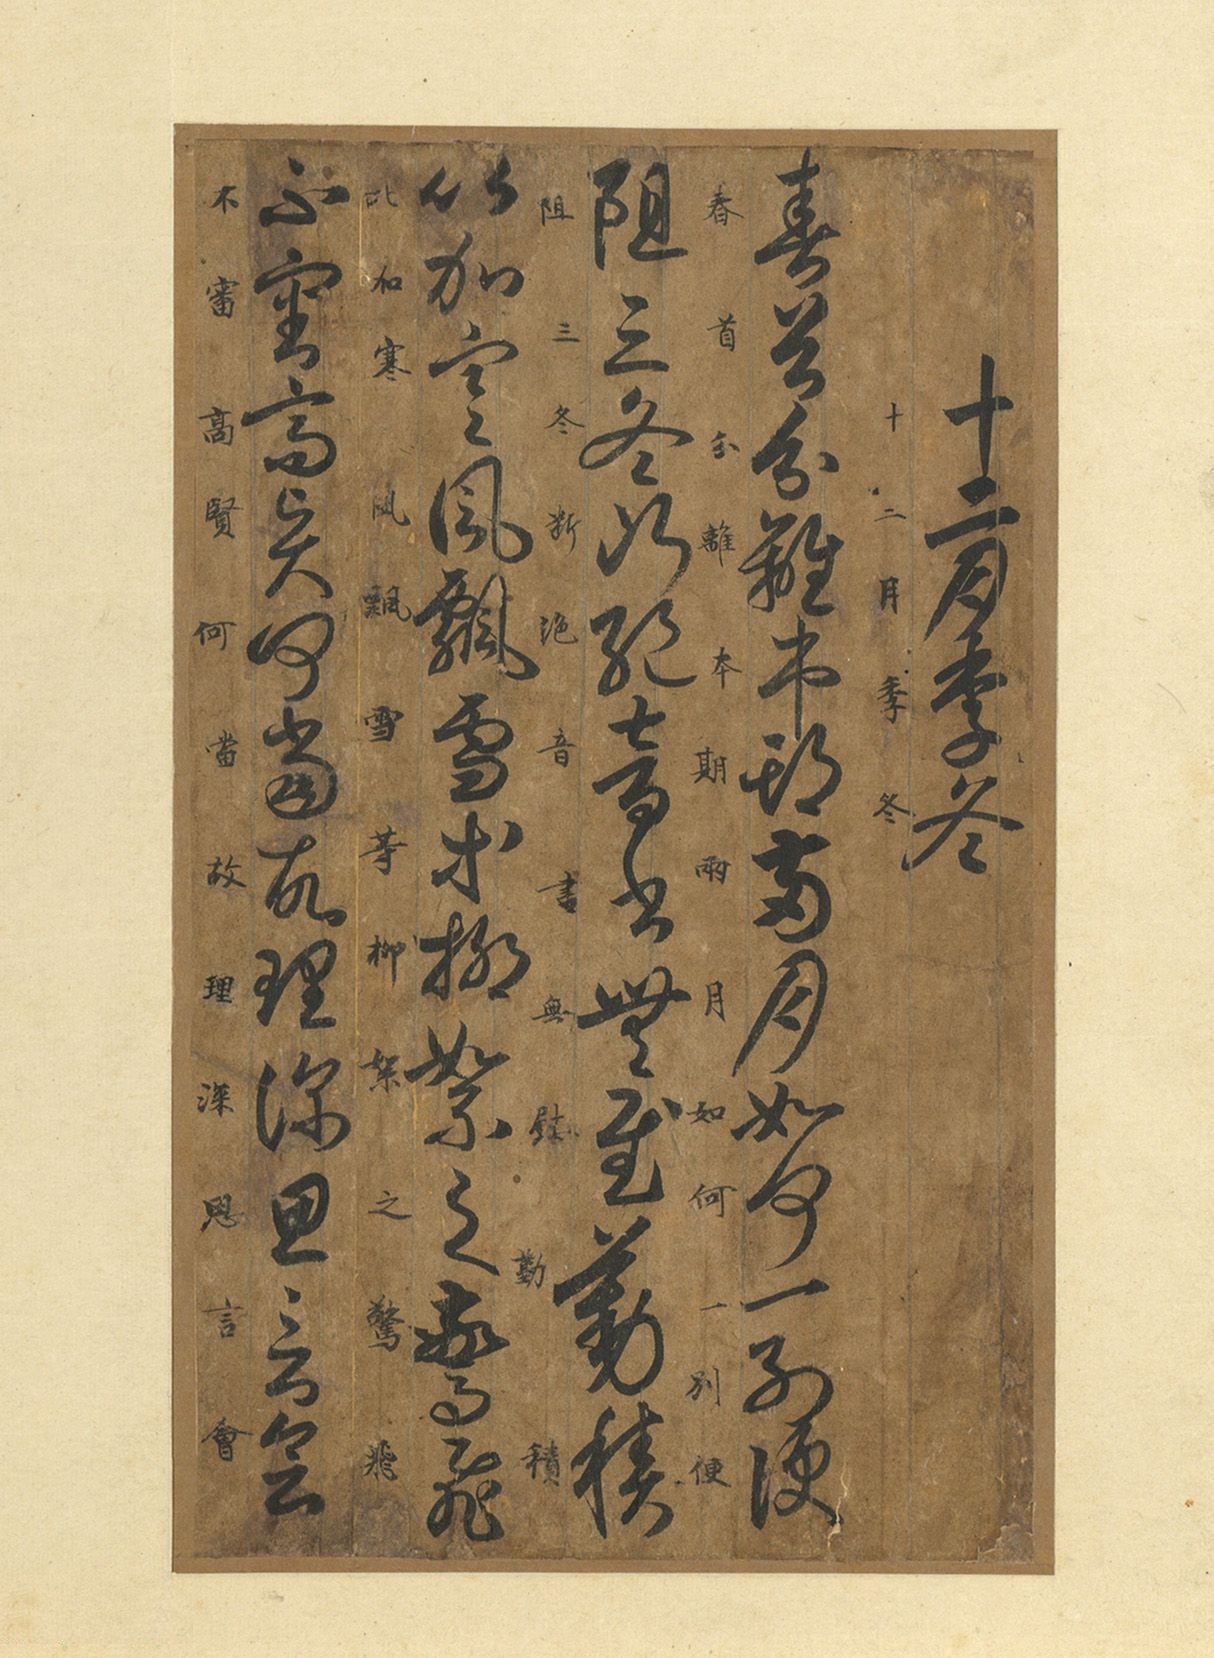 十二月季冬
十二月季冬
春首分離本期兩月如何一別便
春首分離本期兩月如何一別便
阻三冬斷絕音書無慰勤積
阻三冬断絶音書無慰勤積
比加寒風飄雪等柳絮之驚飛
比加寒風飄雪等柳絮之驚飛
不審高賢何當故理深思言會
不審高賢何當故理深思言會